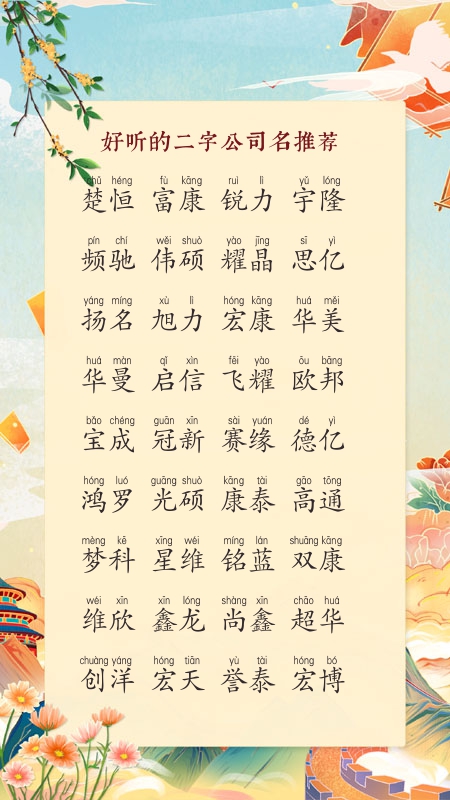 好听的二字公司名推荐
chǔ héng fù kāng ruì lì yǔ lóng
楚恒 富康 锐力 宇隆
pín chí wěi shuò yào jīng sī yì
频驰 伟硕 耀晶 思亿
yáng míng xù lì hóng kāng huá měi
扬名 旭力 宏康 华美
huá màn qǐ xìn fēi yào ōu bāng
华曼 启信 飞耀 欧邦
bǎo chéng guān xīn sài yuán dé yì
宝成 冠新 赛缘 德亿
hóng luó guāng shuò kāng tài gāo tōng
鸿罗 光硕 康泰 高通
mèng kē xīng wéi míng lán shuāng kāng
梦科 星维 铭蓝 双康
wéi xīn xīn lóng shàng xīn chāo huá
维欣 鑫龙 尚鑫 超华
chuàng yáng hóng tiān yù tài hóng bó
创洋 宏天 誉泰 宏博